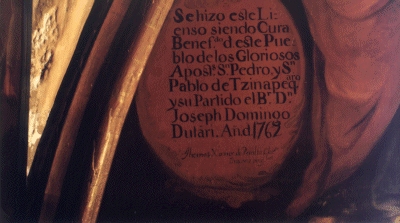 Se hizo este Li
enso siendo Cura
Benef.do d este Pue
blo de los Gloriosos
Apost.s Sn Pedro, y Sn
Pablo de Tzinapequaro
y su Partido el Br. Dn
Joseph Domingo
Dután. Año 1769